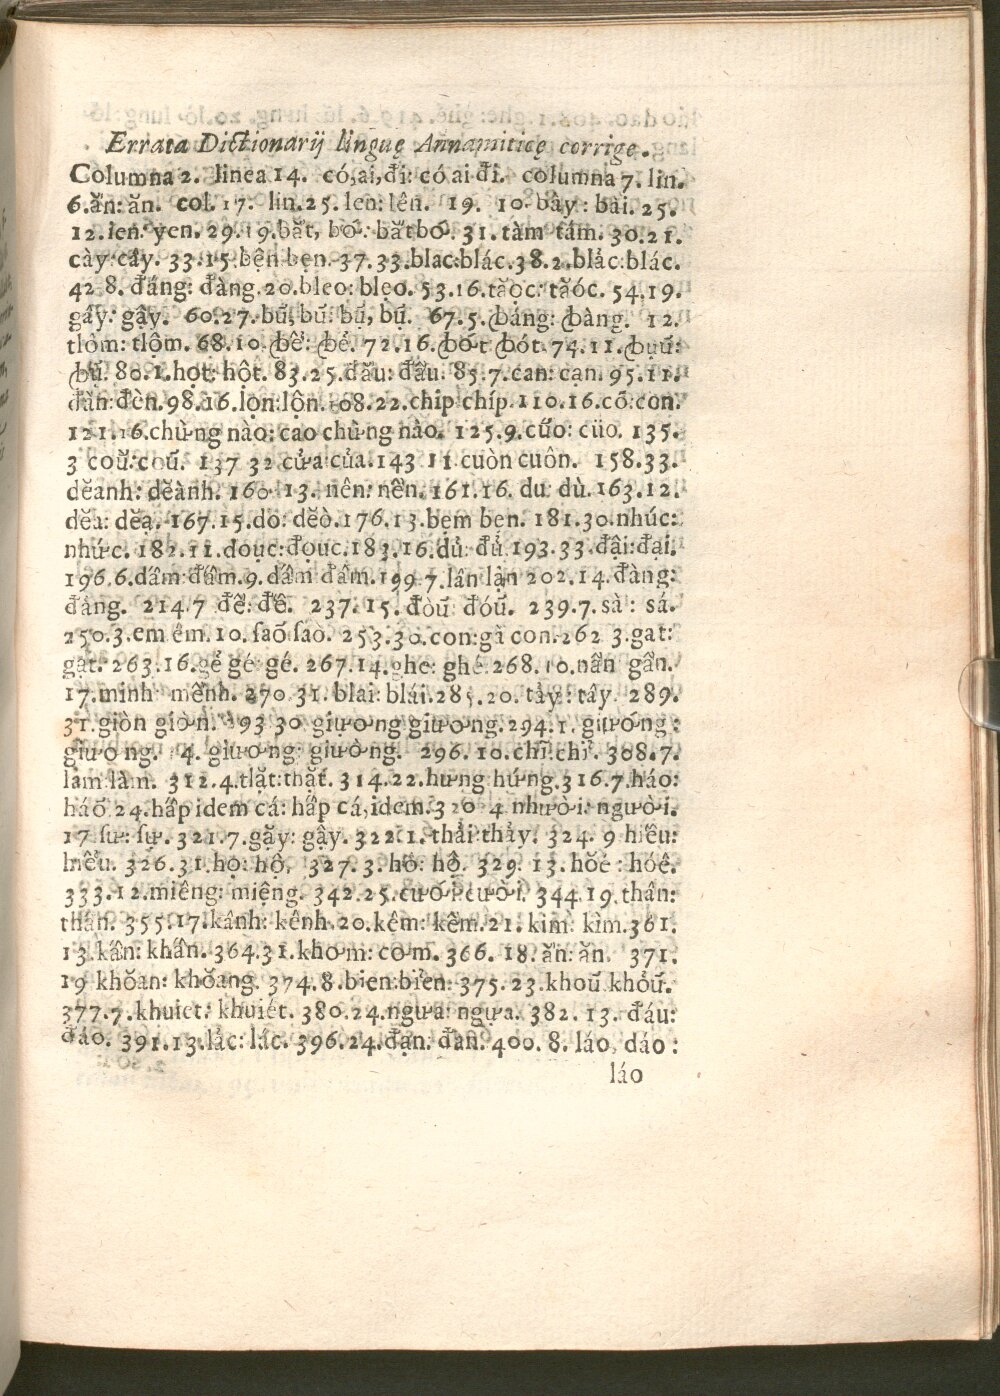 Errata Dictionarij linguę Annamiticę corrige.
Columna 2. linea 14. có,ai,đi: có ai đi. columna 7. lin.
6.ăn: ăn. col. 17. lin.25. len: lên. 19. 10. bây: bài. 25.
12.ien: yen. 29.19.băt, bố: bătbố. 31. tàm tám. 30.21.
cày: cấy. 33.15.bện bẹn. 37.33.blac:blác.38.2.blảc:blác.
42 8. đáng: đàng.20.bleo: blẹo. 53.16.tăọc: tăóc. 54.19.
gấy: gậy. 60.27. bũ, bũ: bụ, bụ. 67.5. ꞗáng: ꞗàng. 12.
tlòm: tlộm. 68.10. ꞗể: ꞗẻ. 72.16. ꞗót ꞗót. 74.11. ꞗụũ:
ꞗụ. 80.1.hợt: hột. 83.25.đấu: đầu. 85.7.can: cạn. 95.11.
đàn: đèn.98.16.lọn:lộn. 108.22.chip chíp.110.16.cỏ:con.
121.16.chừng nào: cao chừng nào. 125.9.cũo: cüo. 135.
3 coũ:coũ. 137 32 cửa của.143 11 cuòn cuôn. 158.33.
dĕanh: dĕành. 160 13. nên: nền. 161.16. du dù. 163.12.
dĕa: dĕạ. 167.15.do: dĕò.176.13.bem ben. 181.30.nhúc:
nhức. 182.11.douc:đọuc.183.16.dủ: đủ 193.33.đậi:đại.
196.6.dấm:đấm.9.dấm đấm.199 7.lân lận 202.14.đàng:
đảng. 214.7 đề: đê. 237.15.đòũ đóũ. 239.7.sà: sá.
250.3.em êm.10.ſaõ ſaò. 253.30.con:gà con.262 3.gat:
gạt. 263.16.gẻ gé: gé. 267.14.ghe: ghé. 268.10.nần gần.
17.minh: mềnh. 270 31. blai: blái.285.20. tảy: tẩy. 289.
31.giòn giờn. 293 30 giượng giương.294.1. giướng:
giương. 4. giương: giường. 296. 10.chĩ:chỉ. 308.7.
làm làm. 312.4.tlặt:thặt. 314.22.hưng hứng.316.7.háo:
háõ 24.hấp idem cá: hấp cá,idem.320 4 nhười: người.
17 ſư: ſự. 321.7.gặy: gậy. 322.1.thải thảy. 324. 9 hiêu:
hiểu. 326.31.họ: hộ. 327.3.hồ: hộ. 329. 13.hŏe: hóê.
333.12.miêng: miệng. 342.25.cưới cười. 344.19.thân:
thần. 355.17.kánh: kênh.20.kêm: kềm.21. kim: kìm.361.
13.kần: khấn. 364.31.khơm: cơm. 366. 18. ăn: ăn. 371.
19 khŏan: khŏang. 374.8.bien:biển: 375.23.khoũ khỏũ.
377.7.khuiet: khuiét. 380.24.ngưa: ngựa. 382.13. đáu:
đáo. 391.13.lảc: lác. 396.24.đạn: đàn. 400. 8. láo, dáo:
láo